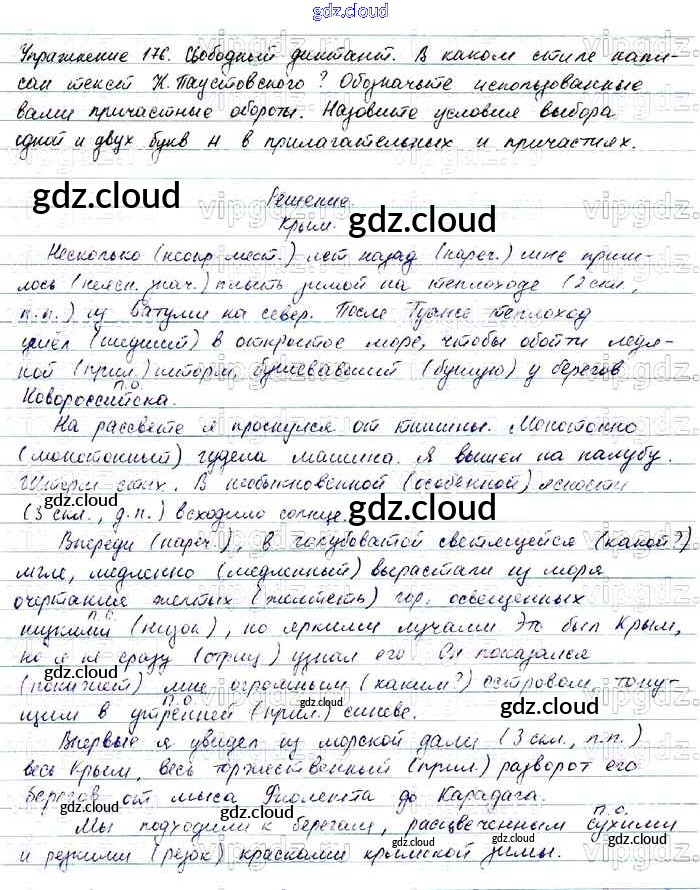 gdz.cloud
Упражнение 176. Свободный диктант. В каком стиле напи-
сан текст К. Паустовского? Обозначьте использованные
вами причастные обороты. Назовите условия выбора
одной и двух букв н в прилагательных и причастиях.
gdz.cloud
Решение.
gdz.cloud
Крым.
Несколько (неопр. мест.) лет назад (нареч.) мне приш-
лось (неясн. знач.) плыть зимой на теплоходе (2 скл.,
п.п.) из Батуми на север. После Туапсе теплоход
ушёл (шедший) в открытое море, чтобы обойти ледя-
ной (прил.) шторм, бушевавший (бушую) у берегов
п.о.
Новороссийска.
На рассвете я проснулся от тишины. Монотонно
(монотонный) гудела машина. Я вышел на палубу.
Шторм стих. В необыкновенной (особенной) ясности
gdz.cloud
(3 скл., д.п.) всходило солнце.
gdz.cloud
Впереди (нареч.), в голубоватой светящейся (какой?)
мгле, медленно (медленный) вырастали из моря
очертания желтых (желтеть) гор, освещенных
п.о.
низкими (низок), но яркими лучами Это был Крым,
но я не сразу (отриц) узнал его Он показался
gdz.cloud
gdz.cloud
(покажет) мне огромным (каким?) островом, тону-
п.о.
щим в утренней (прил.) синеве.
gdz.cloud
Впервые я увидел из морской дали (3 скл., п.п.)
весь Крым, весь торжественный (прил.) разворот его
gdz.cloud
берегов от мыса Фиолента до Карадага.
gdz.cloud
п.о.
Мы подходили к берегам, расцвеченным сухими
и резкими (резок) красками крымской зимы.
gdz.cloud